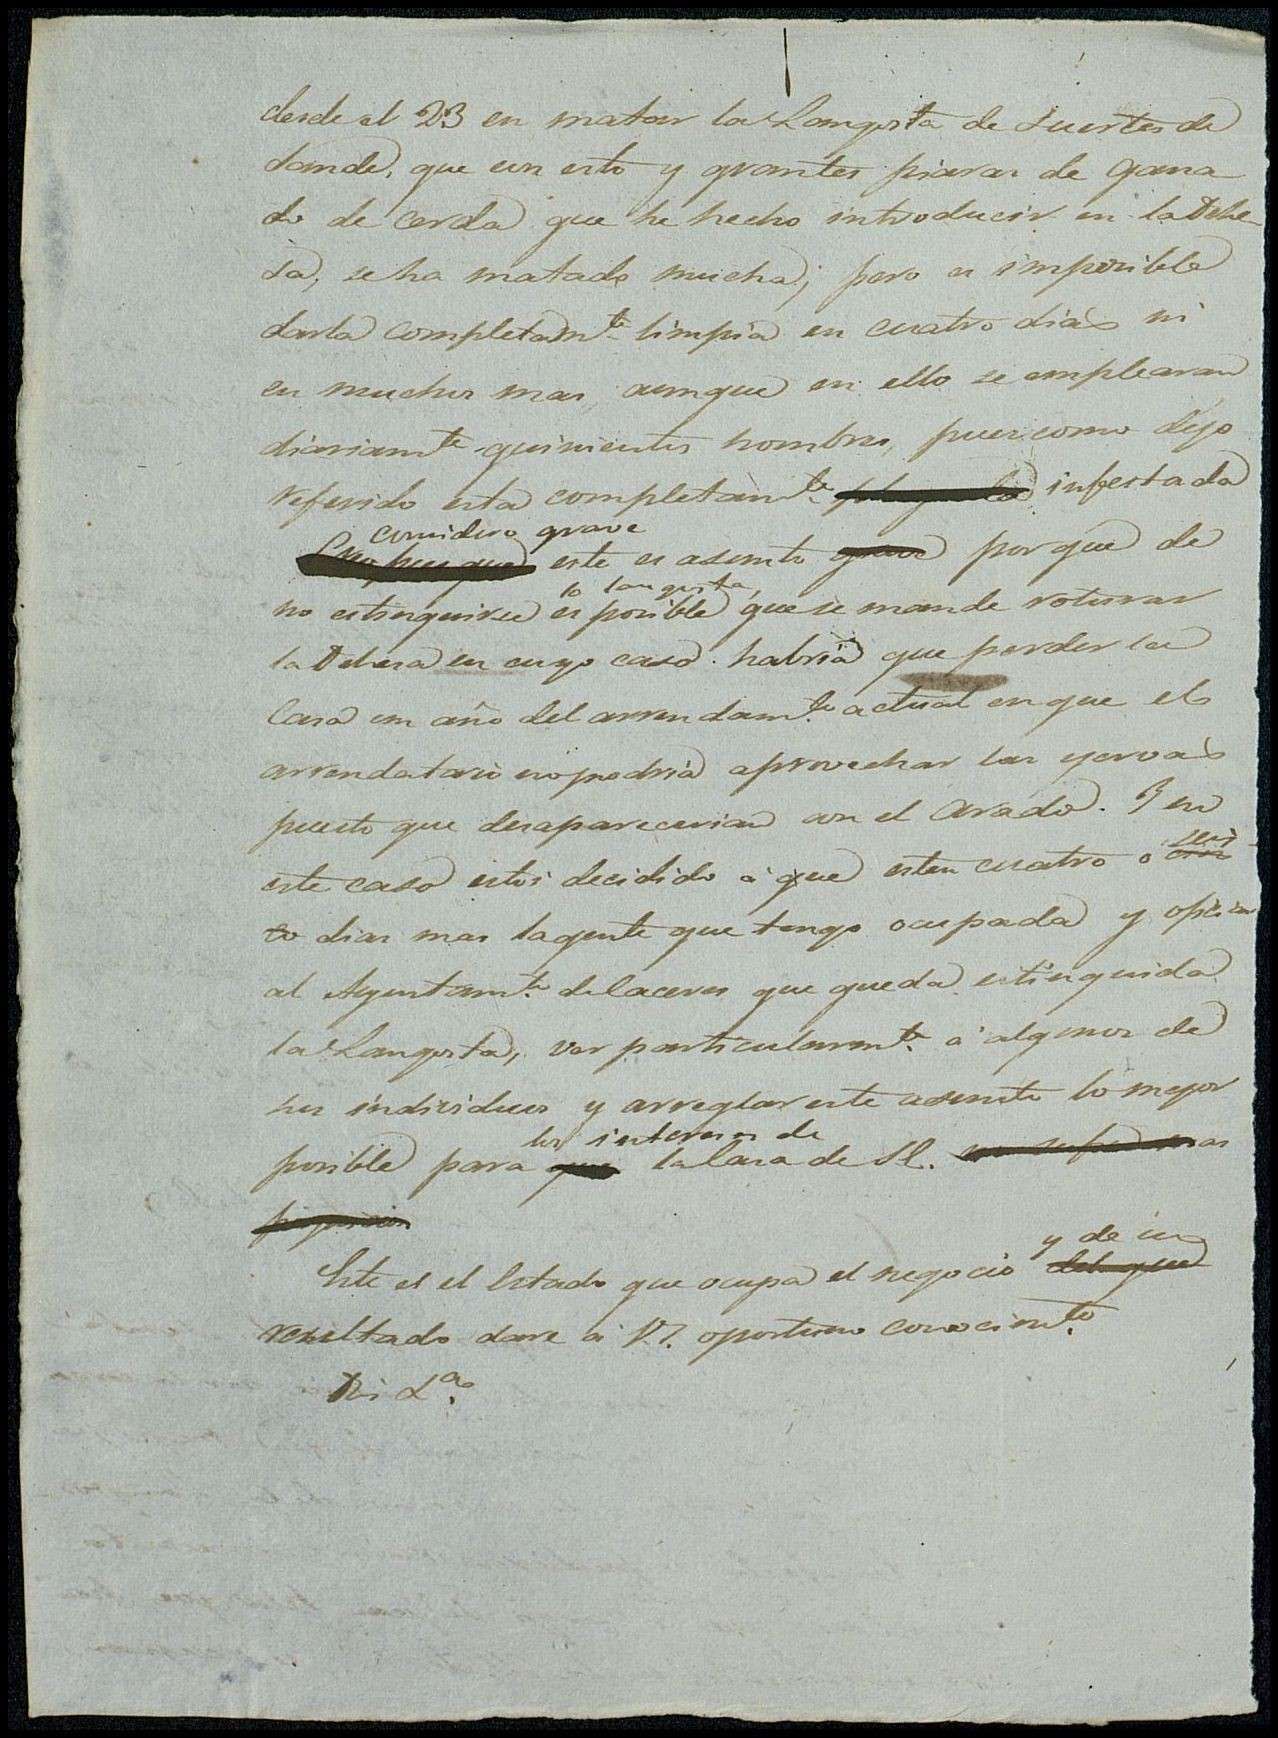 desde el 23 en matar la Langosta de Suertes de
donde, que con esto y grandes piaras de gana
do de cerda que he hecho introducir en la Dehe-
sa, se ha matado mucha; pero es imposible
darla completamte limpia en cuatro dias ni
en muchos mas, aunque en ello se emplearan
diariamte quinientos hombres, pues como dejo
referido esta completamte infestada
considero grave
este es asunto grave porque de
la langosta,
no estinguirse es posible que se mande roturar
la Dehesa en cuyo caso habria que perder la
Casa un año del arrendamto actual en que el
arrendatario no podria aprovechar las yervas
puesto que desaparecerian con el arado. Y en
seis
este caso estoi decidido á que esten cuatro o cin
co dias mas la gente que tengo ocupada y oficiar
al Ayuntamto de Caceres que queda estinguida
la Langosta, ver particularmte á algunos de
sus individuos y arreglar este asunto lo mejor
los intereses de
posible para que la Casa de Sl.
y de cuyo
Este es el Estado que ocupa el negocio del que
resultado dare á V. oportuno conocimto